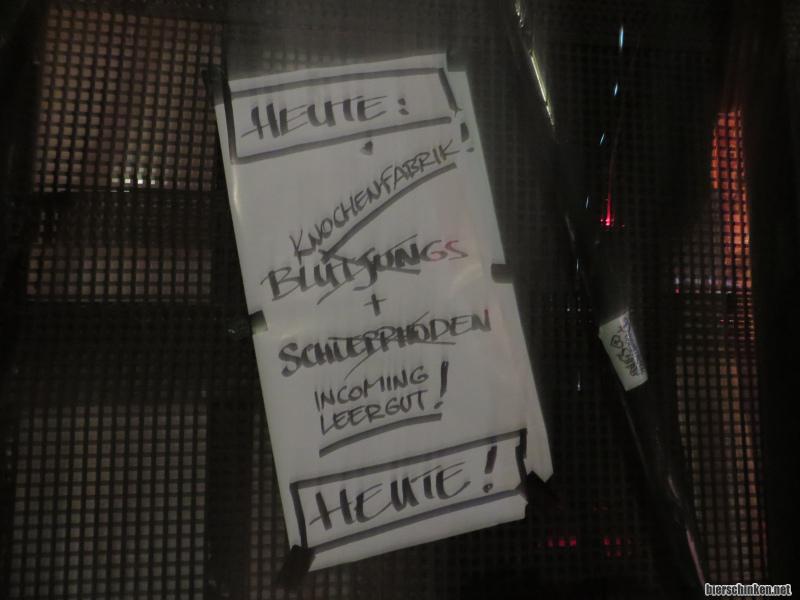 HEUTE:
KNOCHENFABRIK!
BLUTJUNGS
+
SCHLEPPHODEN
INCOMING
LEERGUT!
HEUTE!
bierschinken.net